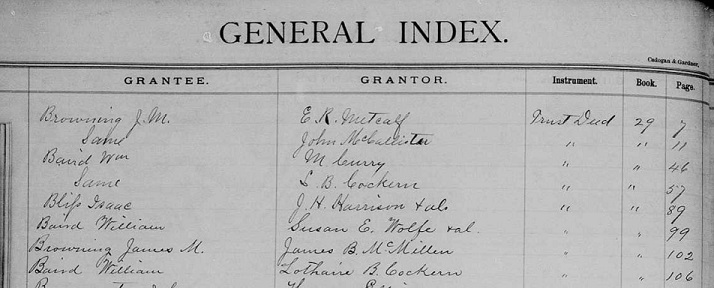 GENERAL INDEX.
Cadogan & Gardner,
GRANTEE. GRANTOR. Instrument. Book. Page.
Browning J. M. E. R. Metcalf Trust Deed 29 7
Same John McCallister " " 11
Baird Wm M Curry " " 46
Same L. B. Cockern " " 57
Bliss Isaac J. H. Harrison + als " " 89
Baird William Susan E. Wolfe + al. " " 99
Browning James M. James B. McMillen " " 102
Baird William Lothaire B. Cockern " " 106